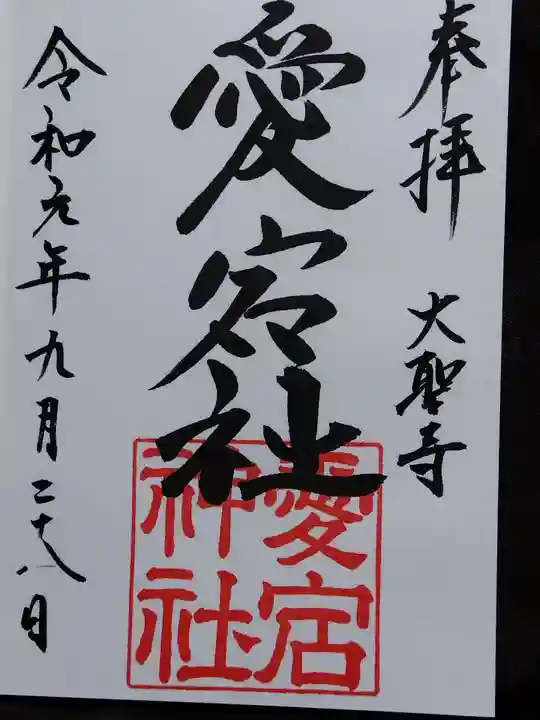 奉拝 大聖寺
愛宕社
愛宕
神社
令和元年九月二十八日